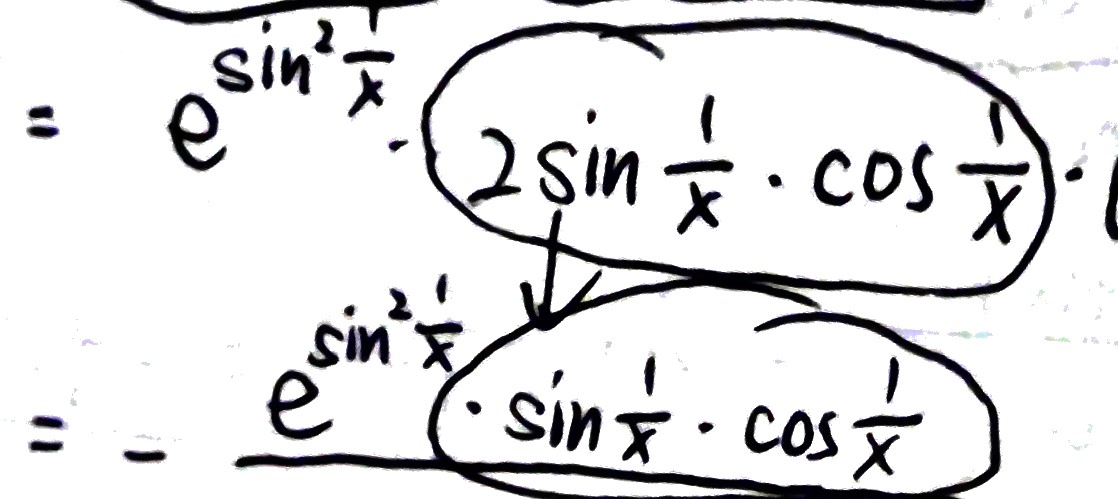 = e^{sin² 1/x} · 2 sin 1/x · cos 1/x ·
= - e^{sin² 1/x} · sin 1/x · cos 1/x